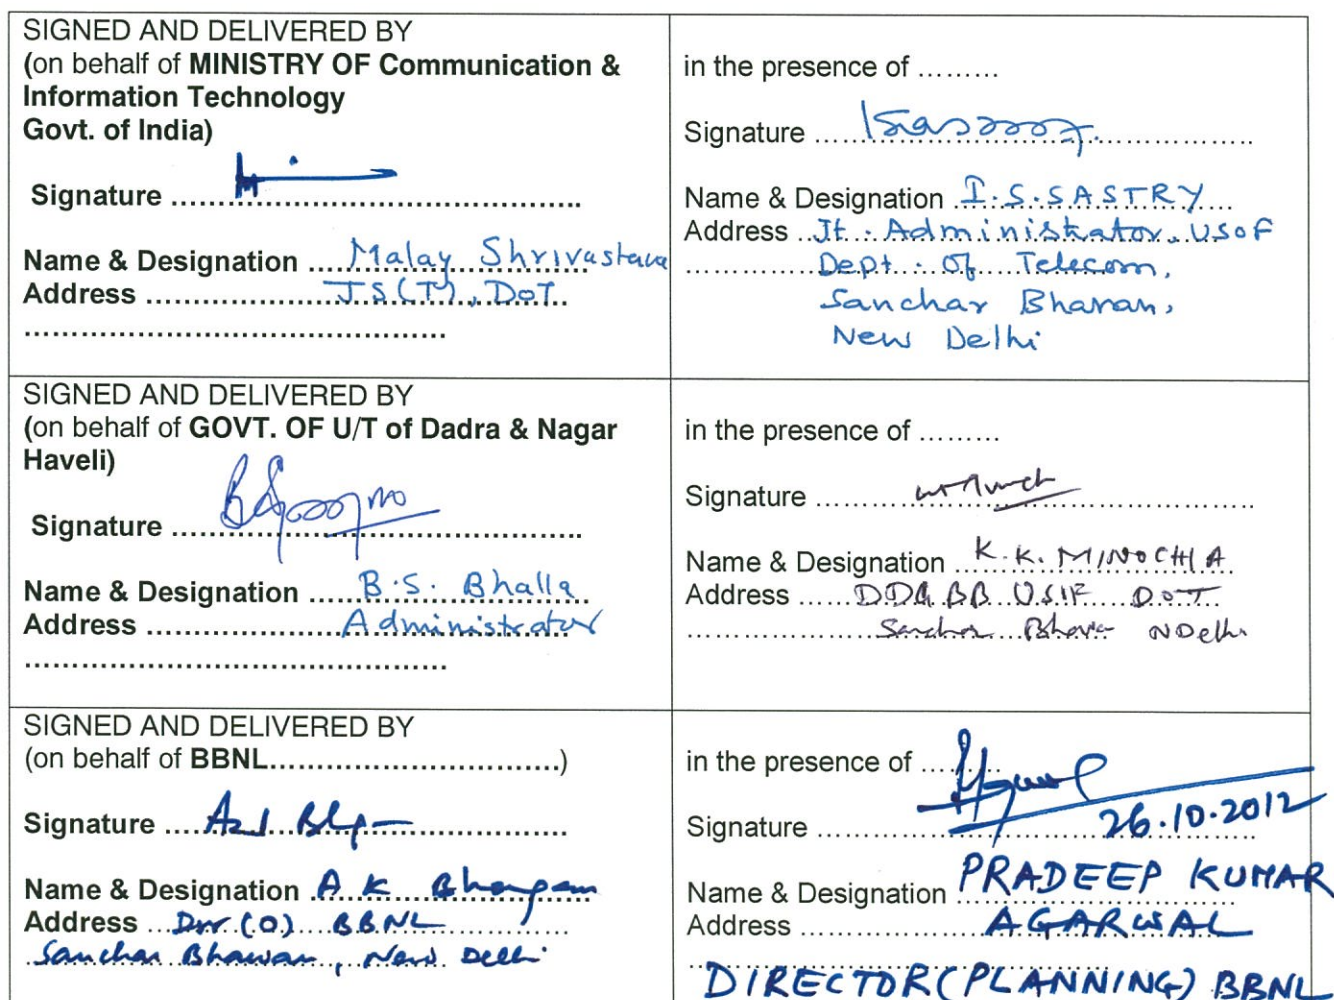 SIGNED AND DELIVERED BY
(on behalf of MINISTRY OF Communication &
Information Technology
Govt. of India)
Signature ..........................................
Name & Designation ....Malay Shrivastava
Address ....................JS(T), DoT
.............................................
in the presence of .........
Signature ..........................................
Name & Designation I.S.SASTRY
Address ..Jt. Administrator, USOF
Dept. Of Telecom,
Sanchar Bhavan,
New Delhi
SIGNED AND DELIVERED BY
(on behalf of GOVT. OF U/T of Dadra & Nagar
Haveli)
Signature ..........................................
Name & Designation ......B.S. Bhalla
Address .....................Administrator
.............................................
in the presence of .........
Signature ..........................................
Name & Designation K.K. MINOCHA
Address ......DDG BB USOF DOT
Sanchar Bhavan NDelhi
SIGNED AND DELIVERED BY
(on behalf of BBNL...............................)
Signature ..........................................
Name & Designation A K Bhargava
Address ...Dir (O) BBNL
Sanchar Bhawan, New Delhi
in the presence of .........
Signature .............................. 26.10.2012
Name & Designation PRADEEP KUMAR
Address ....................AGARWAL
DIRECTOR (PLANNING) BBNL